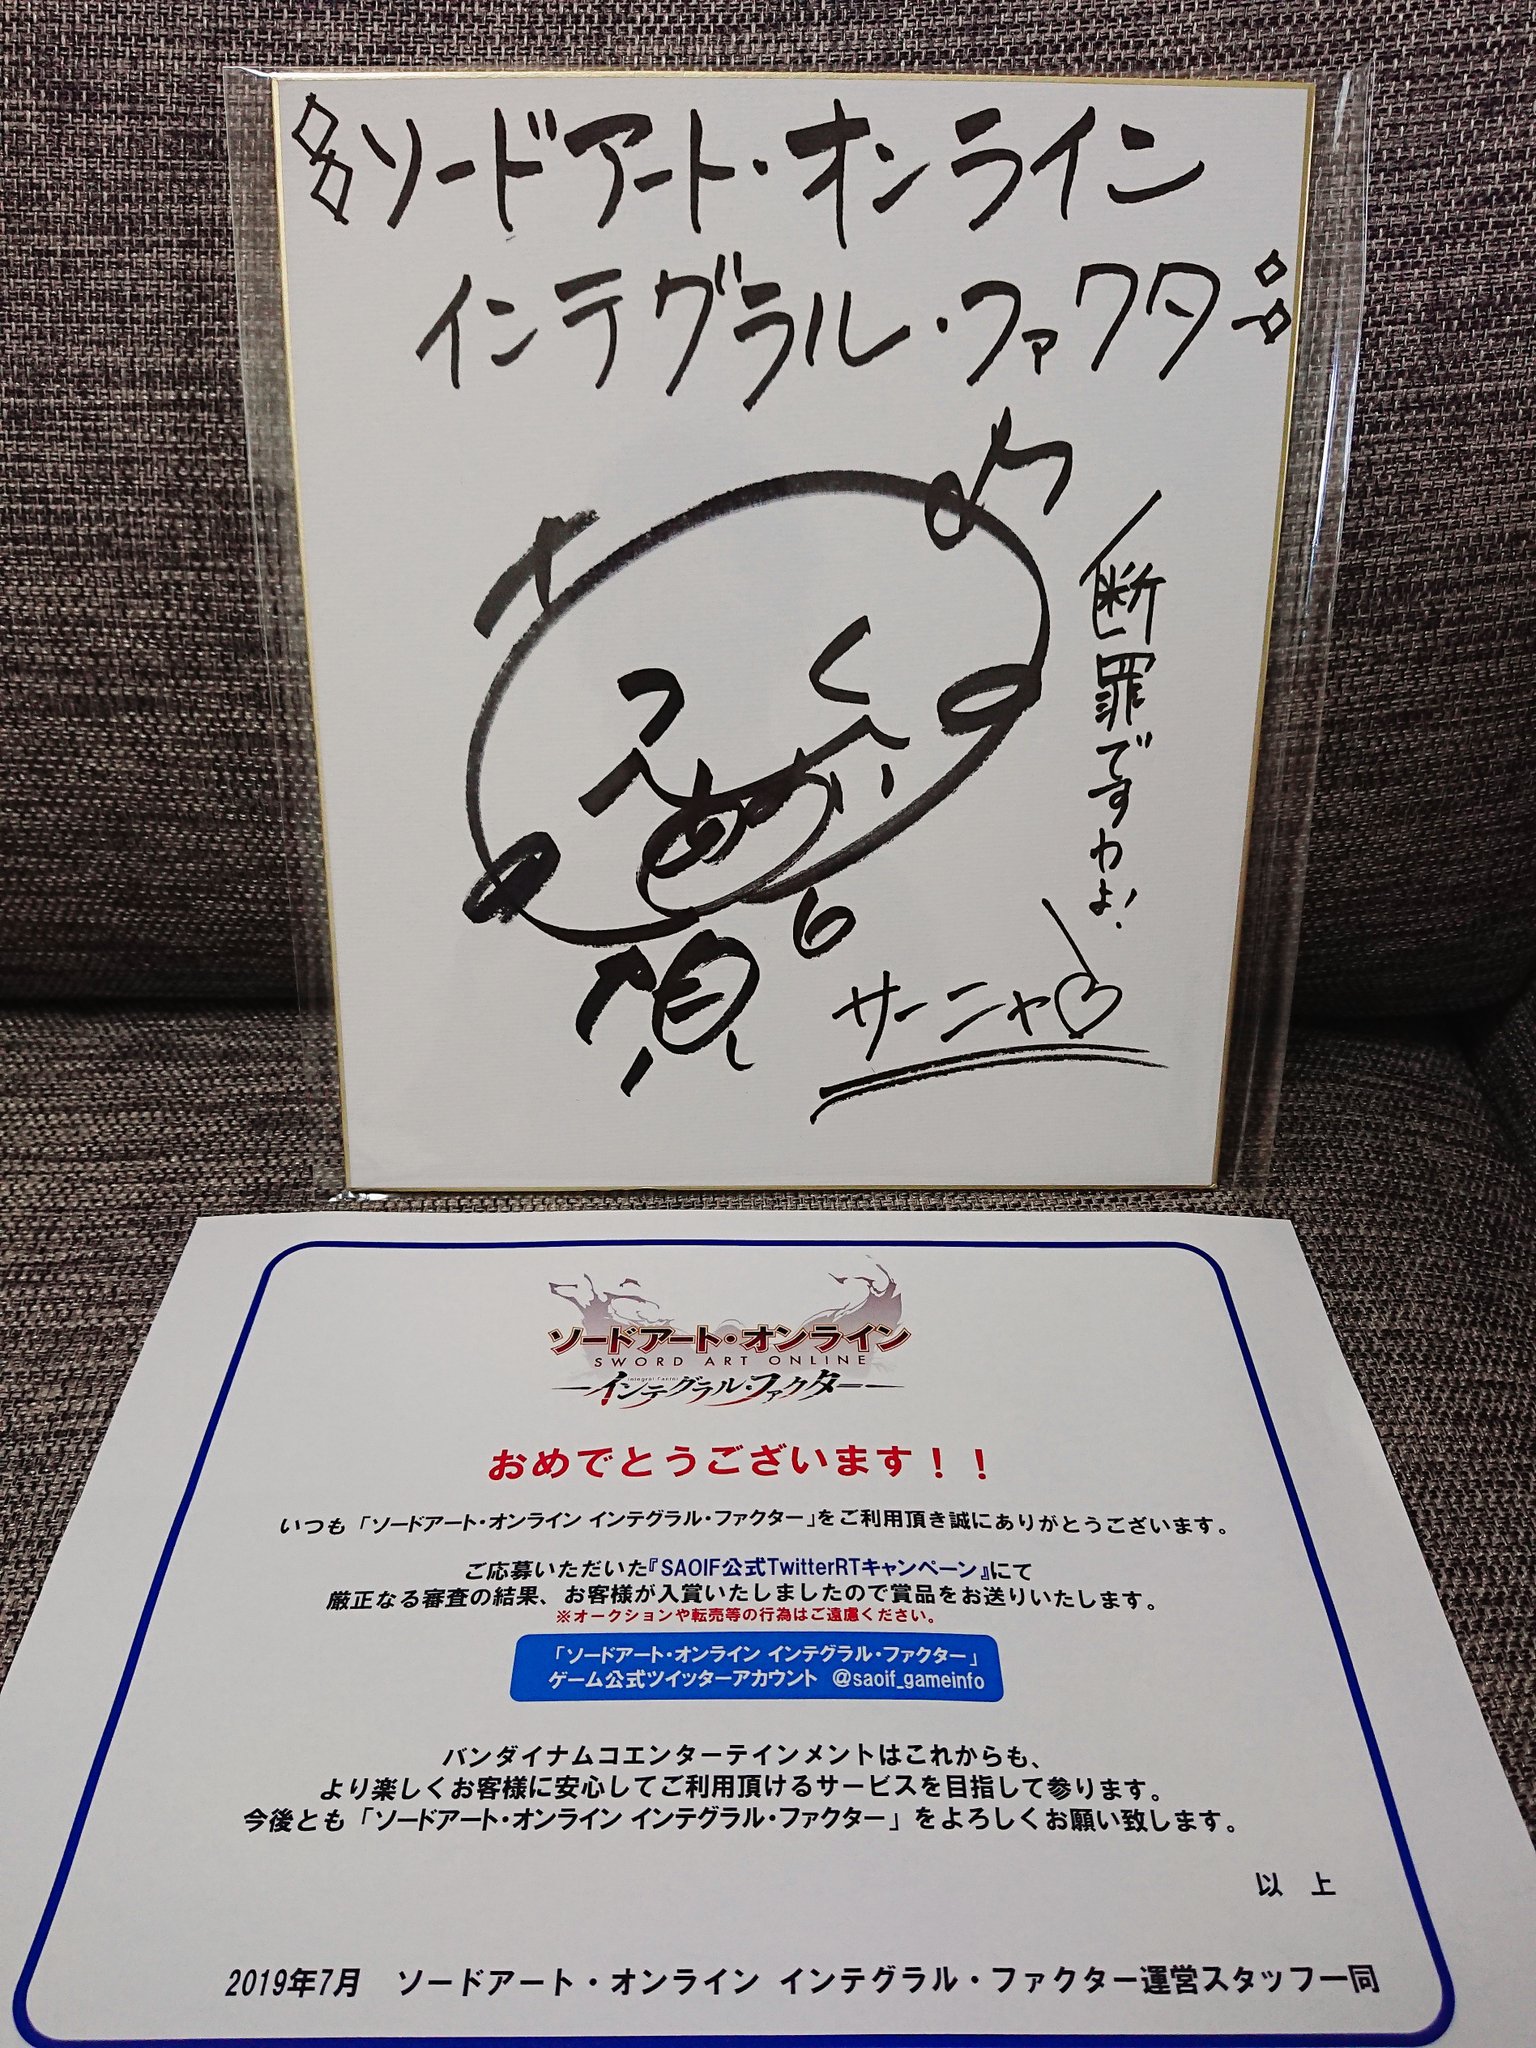 ソードアート・オンライン
インテグラル・ファクター
断罪ですわよ!
サーニャ
ソードアート・オンライン
SWORD ART ONLINE
Integral Factor
インテグラル・ファクター
おめでとうございます！！
いつも「ソードアート・オンライン インテグラル・ファクター」をご利用頂き誠にありがとうございます。
ご応募いただいた『SAOIF公式TwitterRTキャンペーン』にて
厳正なる審査の結果、お客様が入賞いたしましたので賞品をお送りいたします。
※オークションや転売等の行為はご遠慮ください。
「ソードアート・オンライン インテグラル・ファクター」
ゲーム公式ツイッターアカウント @saoif_gameinfo
バンダイナムコエンターテインメントはこれからも、
より楽しくお客様に安心してご利用頂けるサービスを目指して参ります。
今後とも「ソードアート・オンライン インテグラル・ファクター」をよろしくお願い致します。
以 上
2019年7月 ソードアート・オンライン インテグラル・ファクター運営スタッフ一同